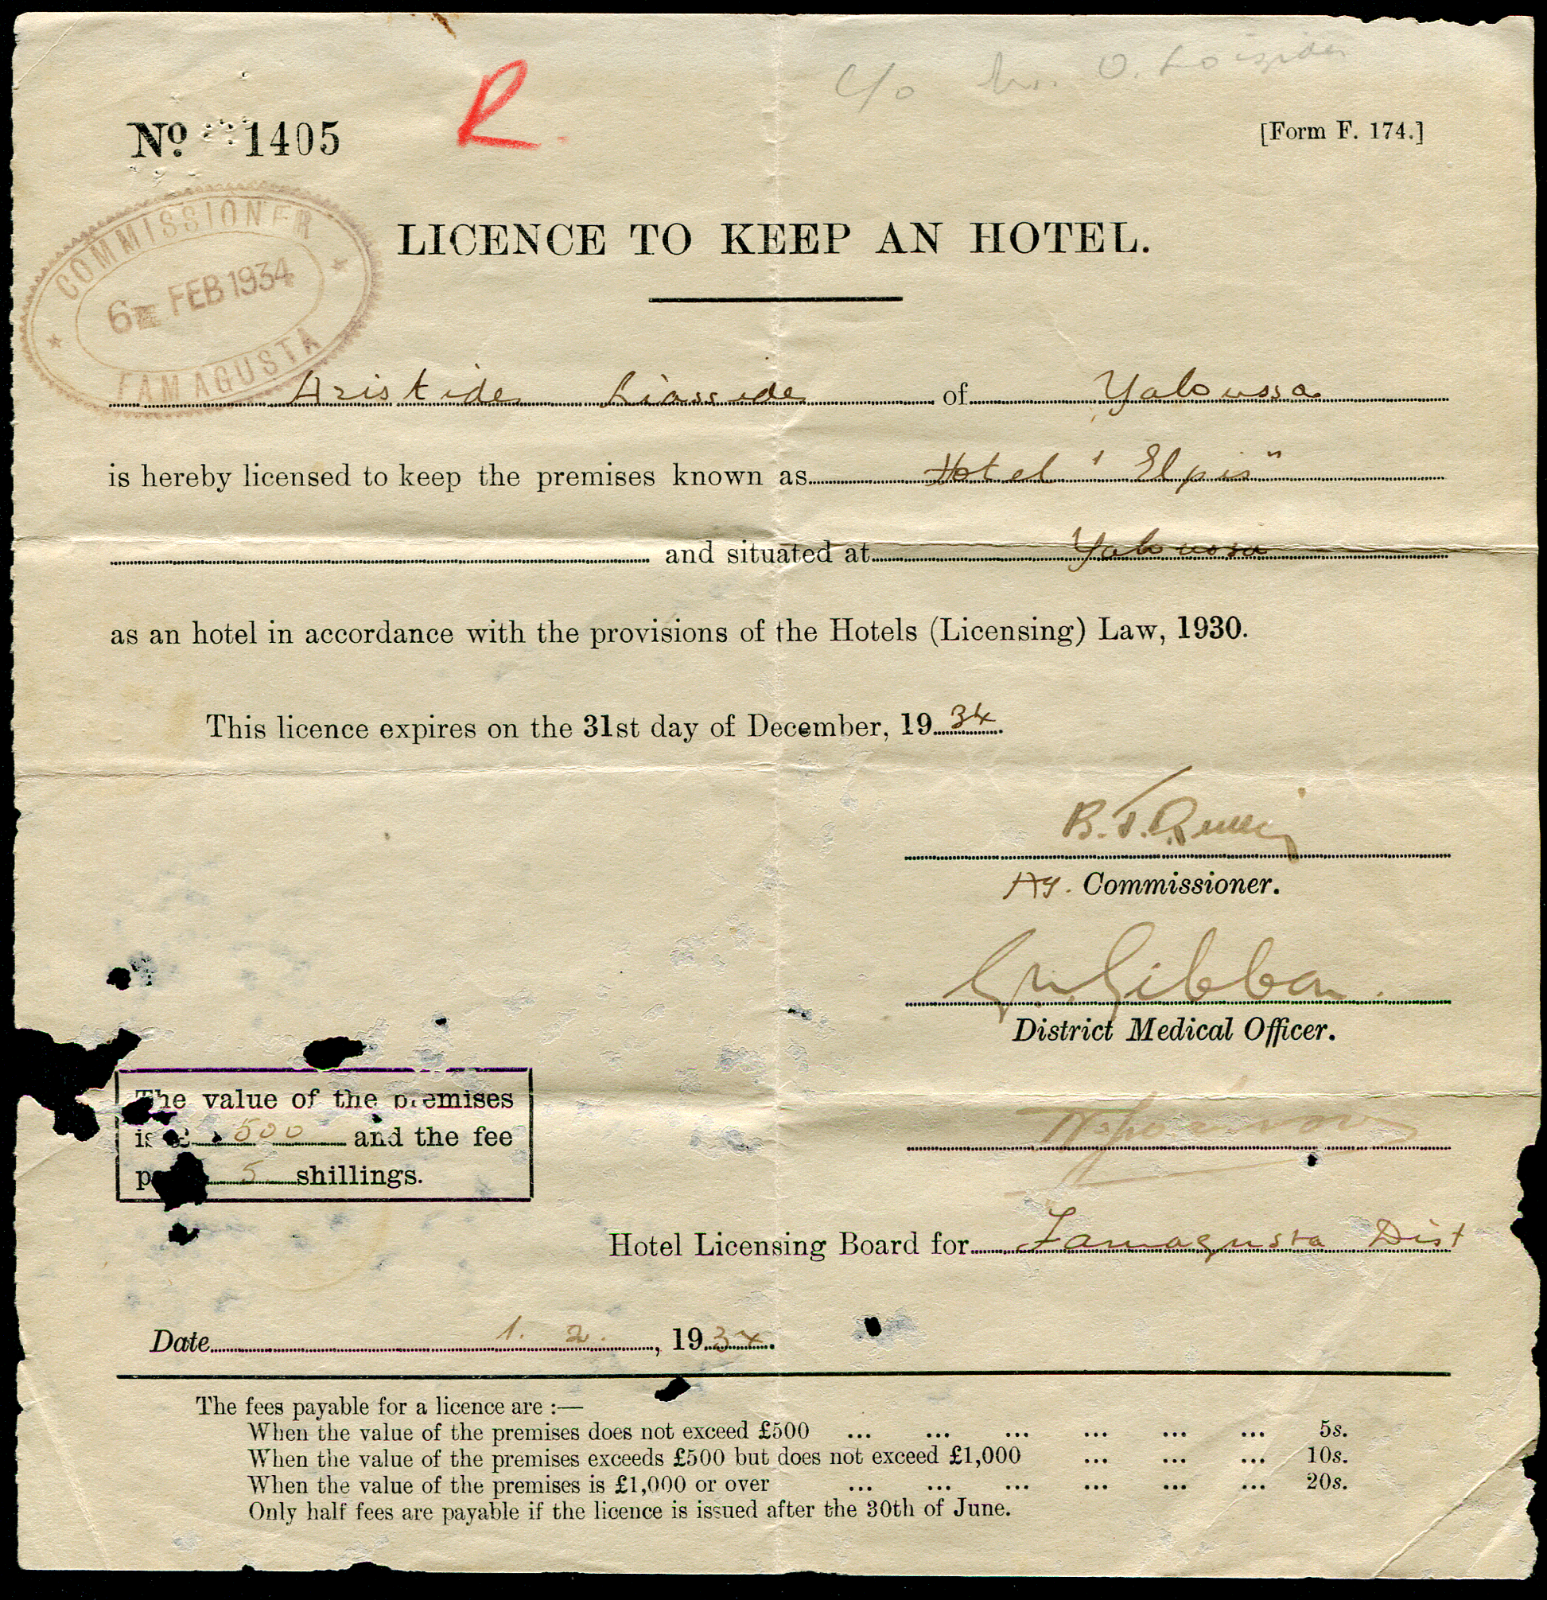 C/o Mr. O. Loizides
No. 1405
R.
[Form F. 174.]
COMMISSIONER
6 FEB 1934
FAMAGUSTA
LICENCE TO KEEP AN HOTEL.
Aristide Liasside of Yaloussa
is hereby licensed to keep the premises known as Hotel "Elpis"
and situated at Yaloussa
as an hotel in accordance with the provisions of the Hotels (Licensing) Law, 1930.
This licence expires on the 31st day of December, 1934.
B. J.
Ag. Commissioner.
Gibbon.
District Medical Officer.
The value of the premises
is £ 500 and the fee
5 shillings.
Hotel Licensing Board for Famagusta Dist
Date 1. 2. , 1934.
The fees payable for a licence are :—
When the value of the premises does not exceed £500 ... ... ... ... ... ... 5s.
When the value of the premises exceeds £500 but does not exceed £1,000 ... ... ... 10s.
When the value of the premises is £1,000 or over ... ... ... ... ... ... 20s.
Only half fees are payable if the licence is issued after the 30th of June.